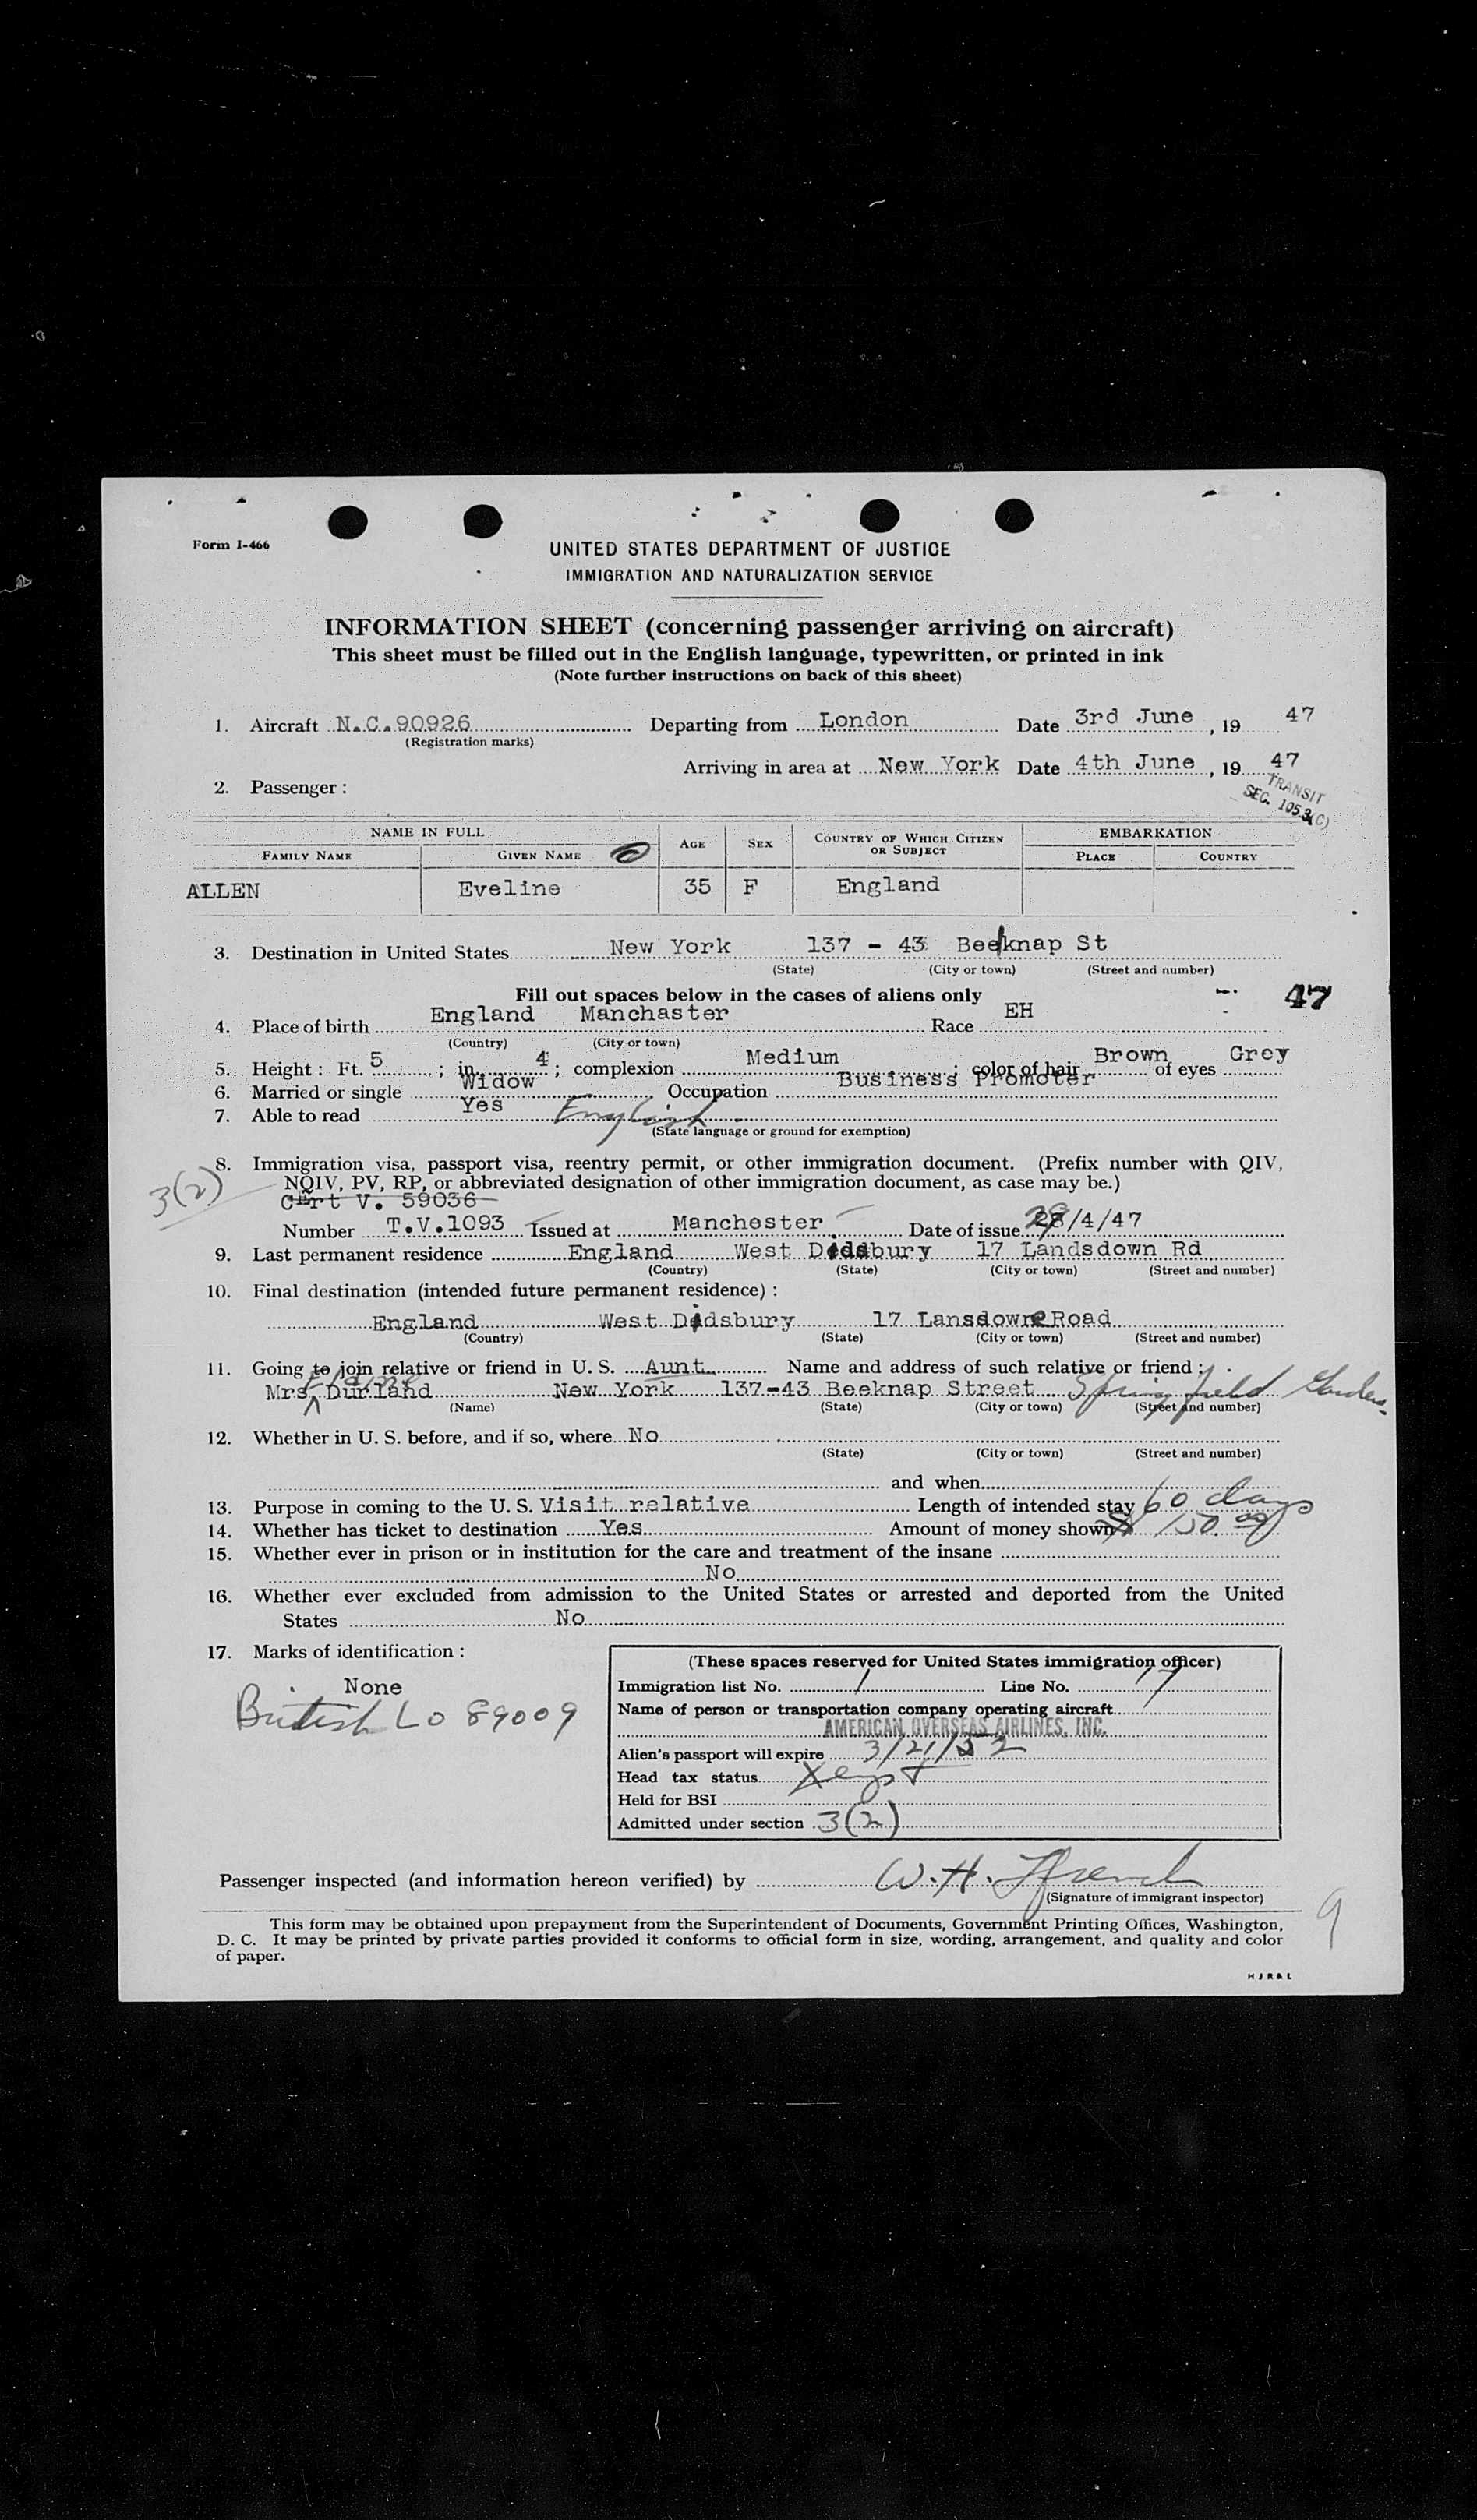 Form I-466
UNITED STATES DEPARTMENT OF JUSTICE
IMMIGRATION AND NATURALIZATION SERVICE
INFORMATION SHEET (concerning passenger arriving on aircraft)
This sheet must be filled out in the English language, typewritten, or printed in ink
(Note further instructions on back of this sheet)
1. Aircraft N.C.90926 Departing from London Date 3rd June, 19 47
(Registration marks)
Arriving in area at New York Date 4th June, 19 47
2. Passenger:
TRANSIT
SEC. 105.3(C)
NAME IN FULL AGE SEX COUNTRY OF WHICH CITIZEN OR SUBJECT EMBARKATION
FAMILY NAME GIVEN NAME PLACE COUNTRY
ALLEN Eveline 35 F England
3. Destination in United States New York 137 - 43 Beeknap St
(State) (City or town) (Street and number)
Fill out spaces below in the cases of aliens only
47
4. Place of birth England Manchaster Race EH
(Country) (City or town)
5. Height: Ft. 5; in. 4; complexion Medium; color of hair Brown of eyes Grey
6. Married or single Widow Occupation Business Promoter
7. Able to read Yes English
(State language or ground for exemption)
8. Immigration visa, passport visa, reentry permit, or other immigration document. (Prefix number with QIV,
3(2)
NQIV, PV, RP, or abbreviated designation of other immigration document, as case may be.)
Cert V. 59036
Number T.V.1093 Issued at Manchester Date of issue 28/4/47
9. Last permanent residence England West Didsbury 17 Landsdown Rd
(Country) (State) (City or town) (Street and number)
10. Final destination (intended future permanent residence):
England West Didsbury 17 Lansdowne Road
(Country) (State) (City or town) (Street and number)
11. Going to join relative or friend in U. S. Aunt Name and address of such relative or friend:
Mrs. Durland New York 137-43 Beeknap Street Springfield Gardens
(Name) (State) (City or town) (Street and number)
12. Whether in U. S. before, and if so, where No
(State) (City or town) (Street and number)
and when
13. Purpose in coming to the U. S. Visit relative Length of intended stay 60 days
14. Whether has ticket to destination Yes Amount of money shown $ 150.00
15. Whether ever in prison or in institution for the care and treatment of the insane
No
16. Whether ever excluded from admission to the United States or arrested and deported from the United
States No
17. Marks of identification:
None
British Lo 89009
(These spaces reserved for United States immigration officer)
Immigration list No. 1 Line No. 17
Name of person or transportation company operating aircraft
AMERICAN OVERSEAS AIRLINES, INC.
Alien's passport will expire 3/21/52
Head tax status
Held for BSI
Admitted under section 3(2)
Passenger inspected (and information hereon verified) by W. H. Ffrench
(Signature of immigrant inspector)
9
This form may be obtained upon prepayment from the Superintendent of Documents, Government Printing Offices, Washington,
D. C. It may be printed by private parties provided it conforms to official form in size, wording, arrangement, and quality and color
of paper.
H J R & L